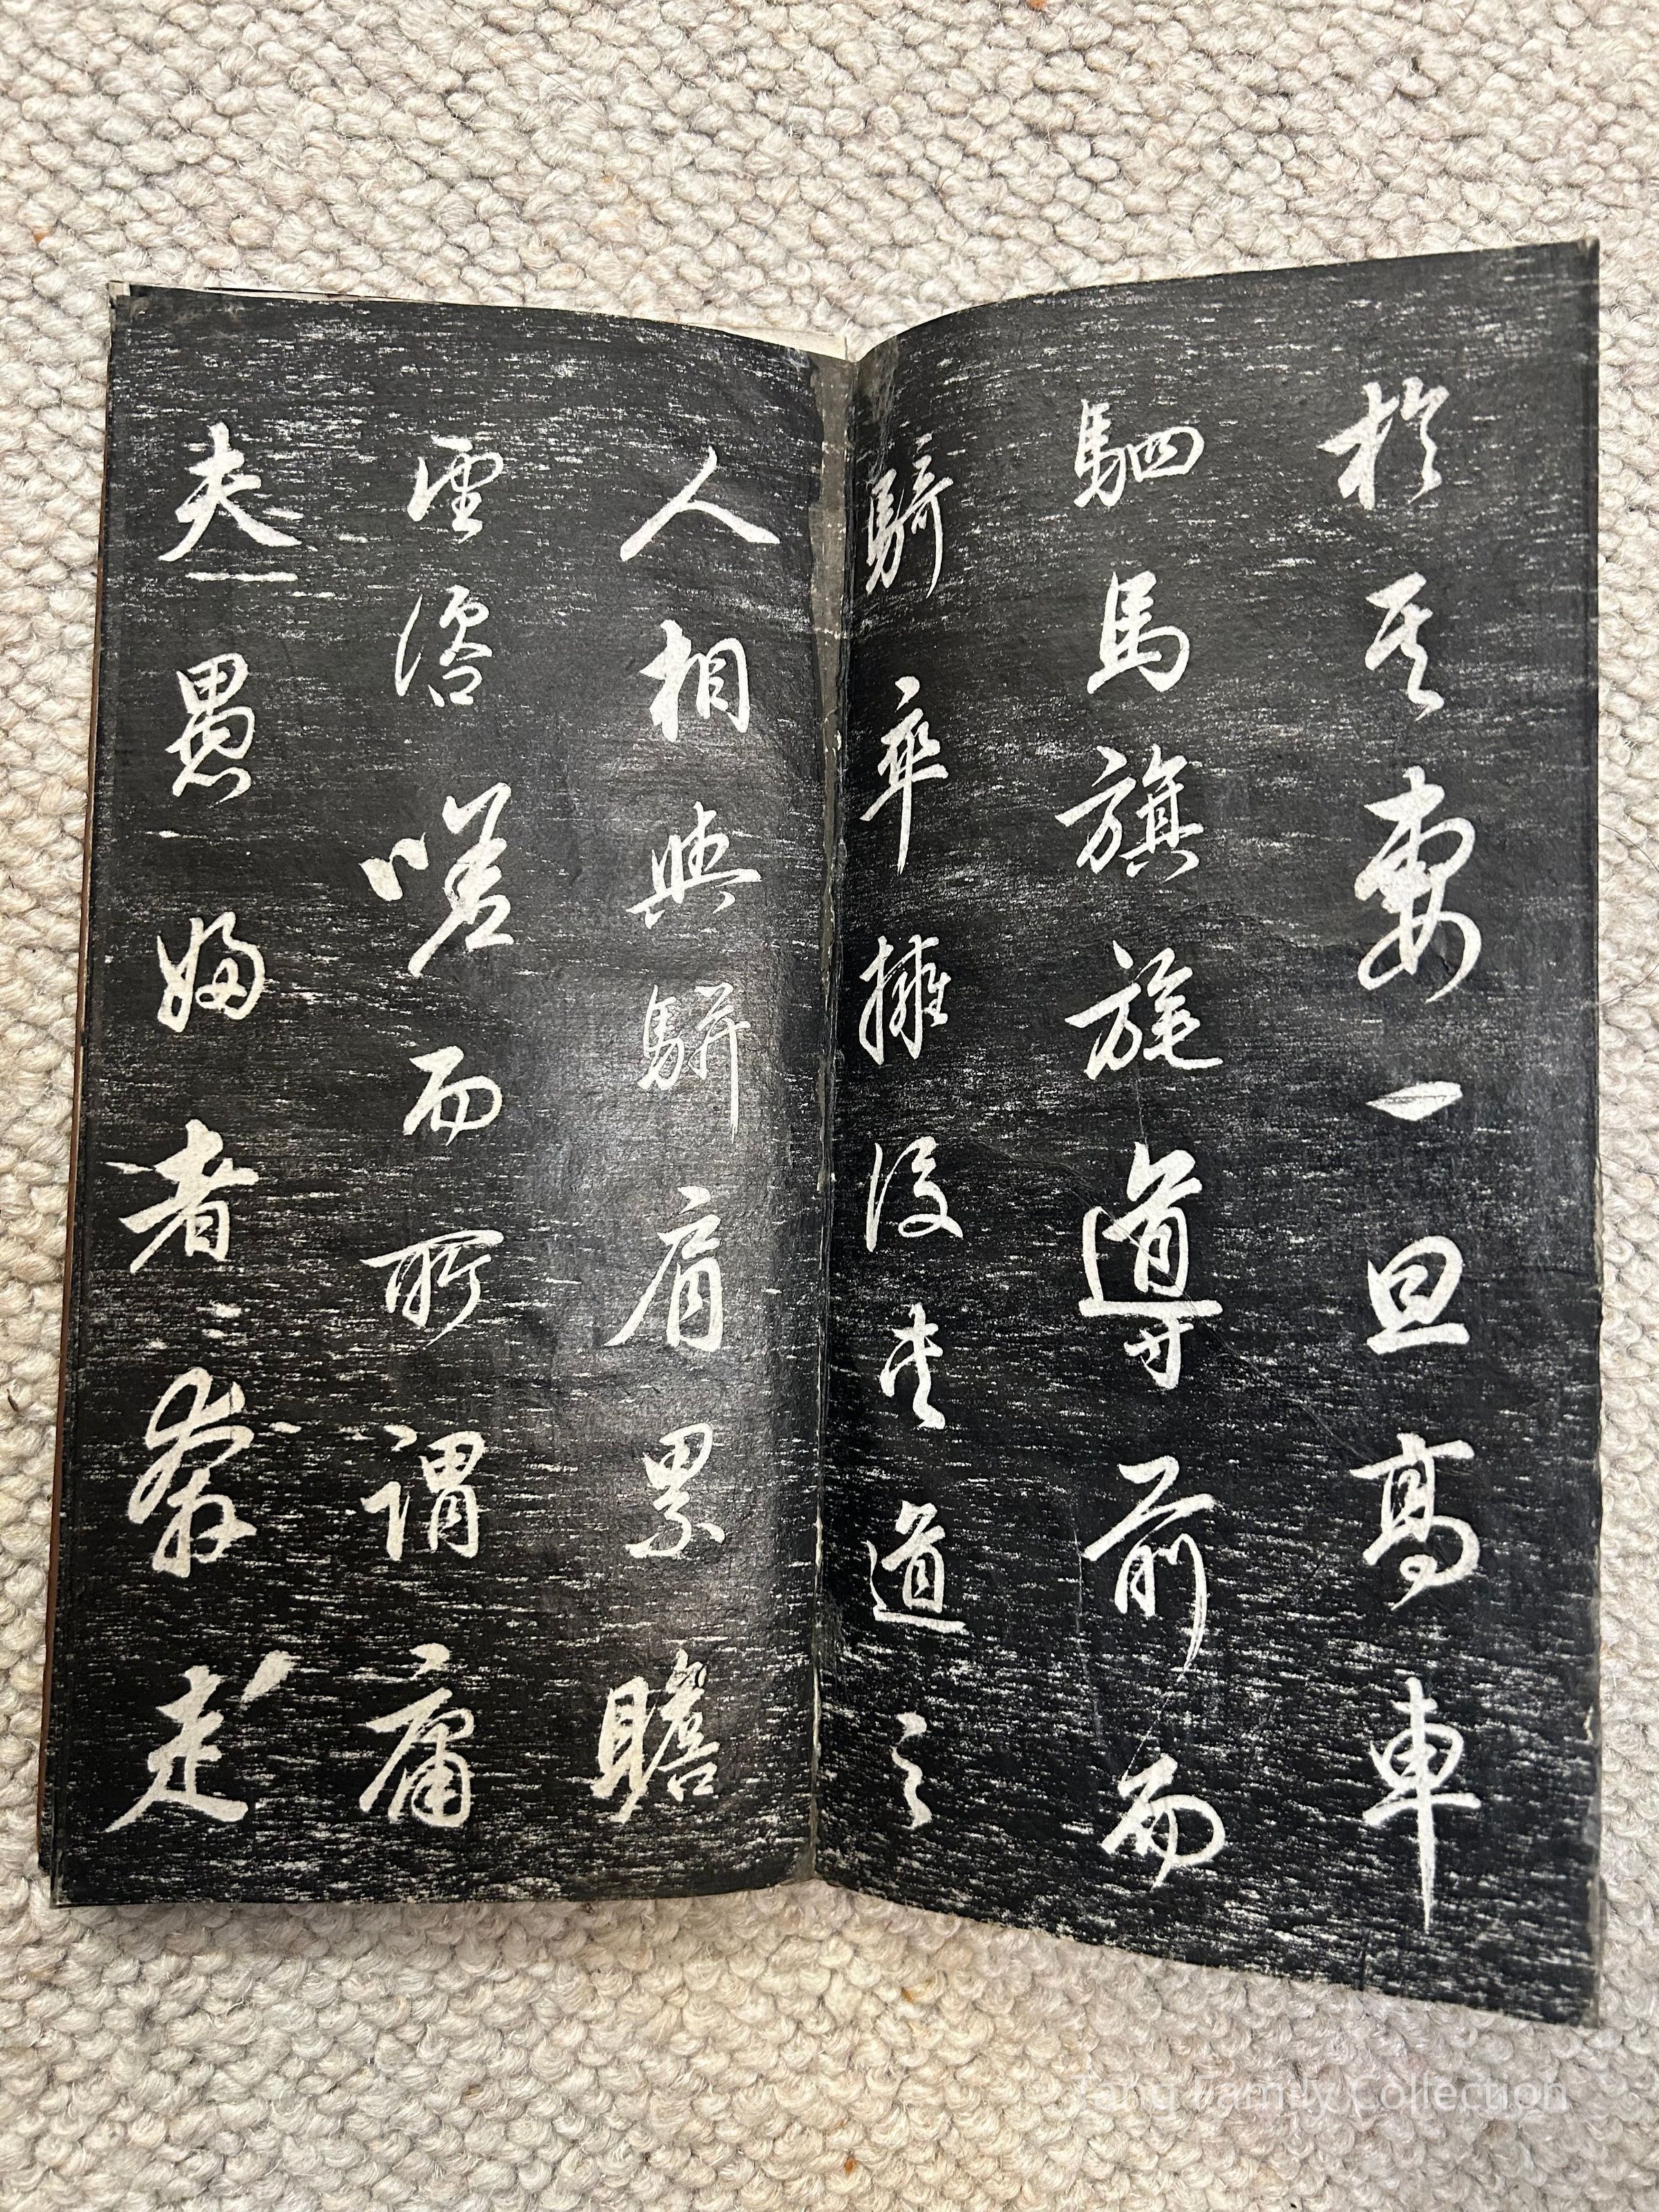 於其妻一旦高車
駟馬旗旄導前而
騎卒擁後夾道之
人相與駢肩累瞻
望咨嗟而所謂庸
夫愚婦者奔走
Tang Family Collection